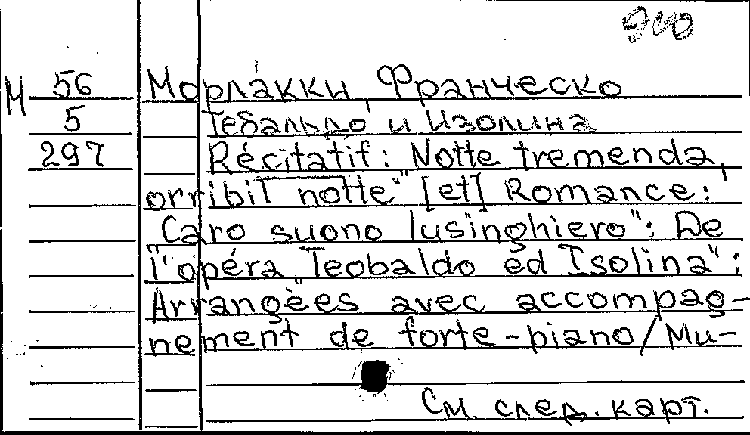 М 56 Морла́кки, Франческо
5 Тебальдо и Изолина
297 Récitatif: Notte tremenda,
orribil notte" [et] Romance:
"Caro suono lusinghiero": De
l'opéra "Teobaldo ed Isolina":
Arrangées avec accompag-
nement de forte-piano/Mu-
См. след. карт.